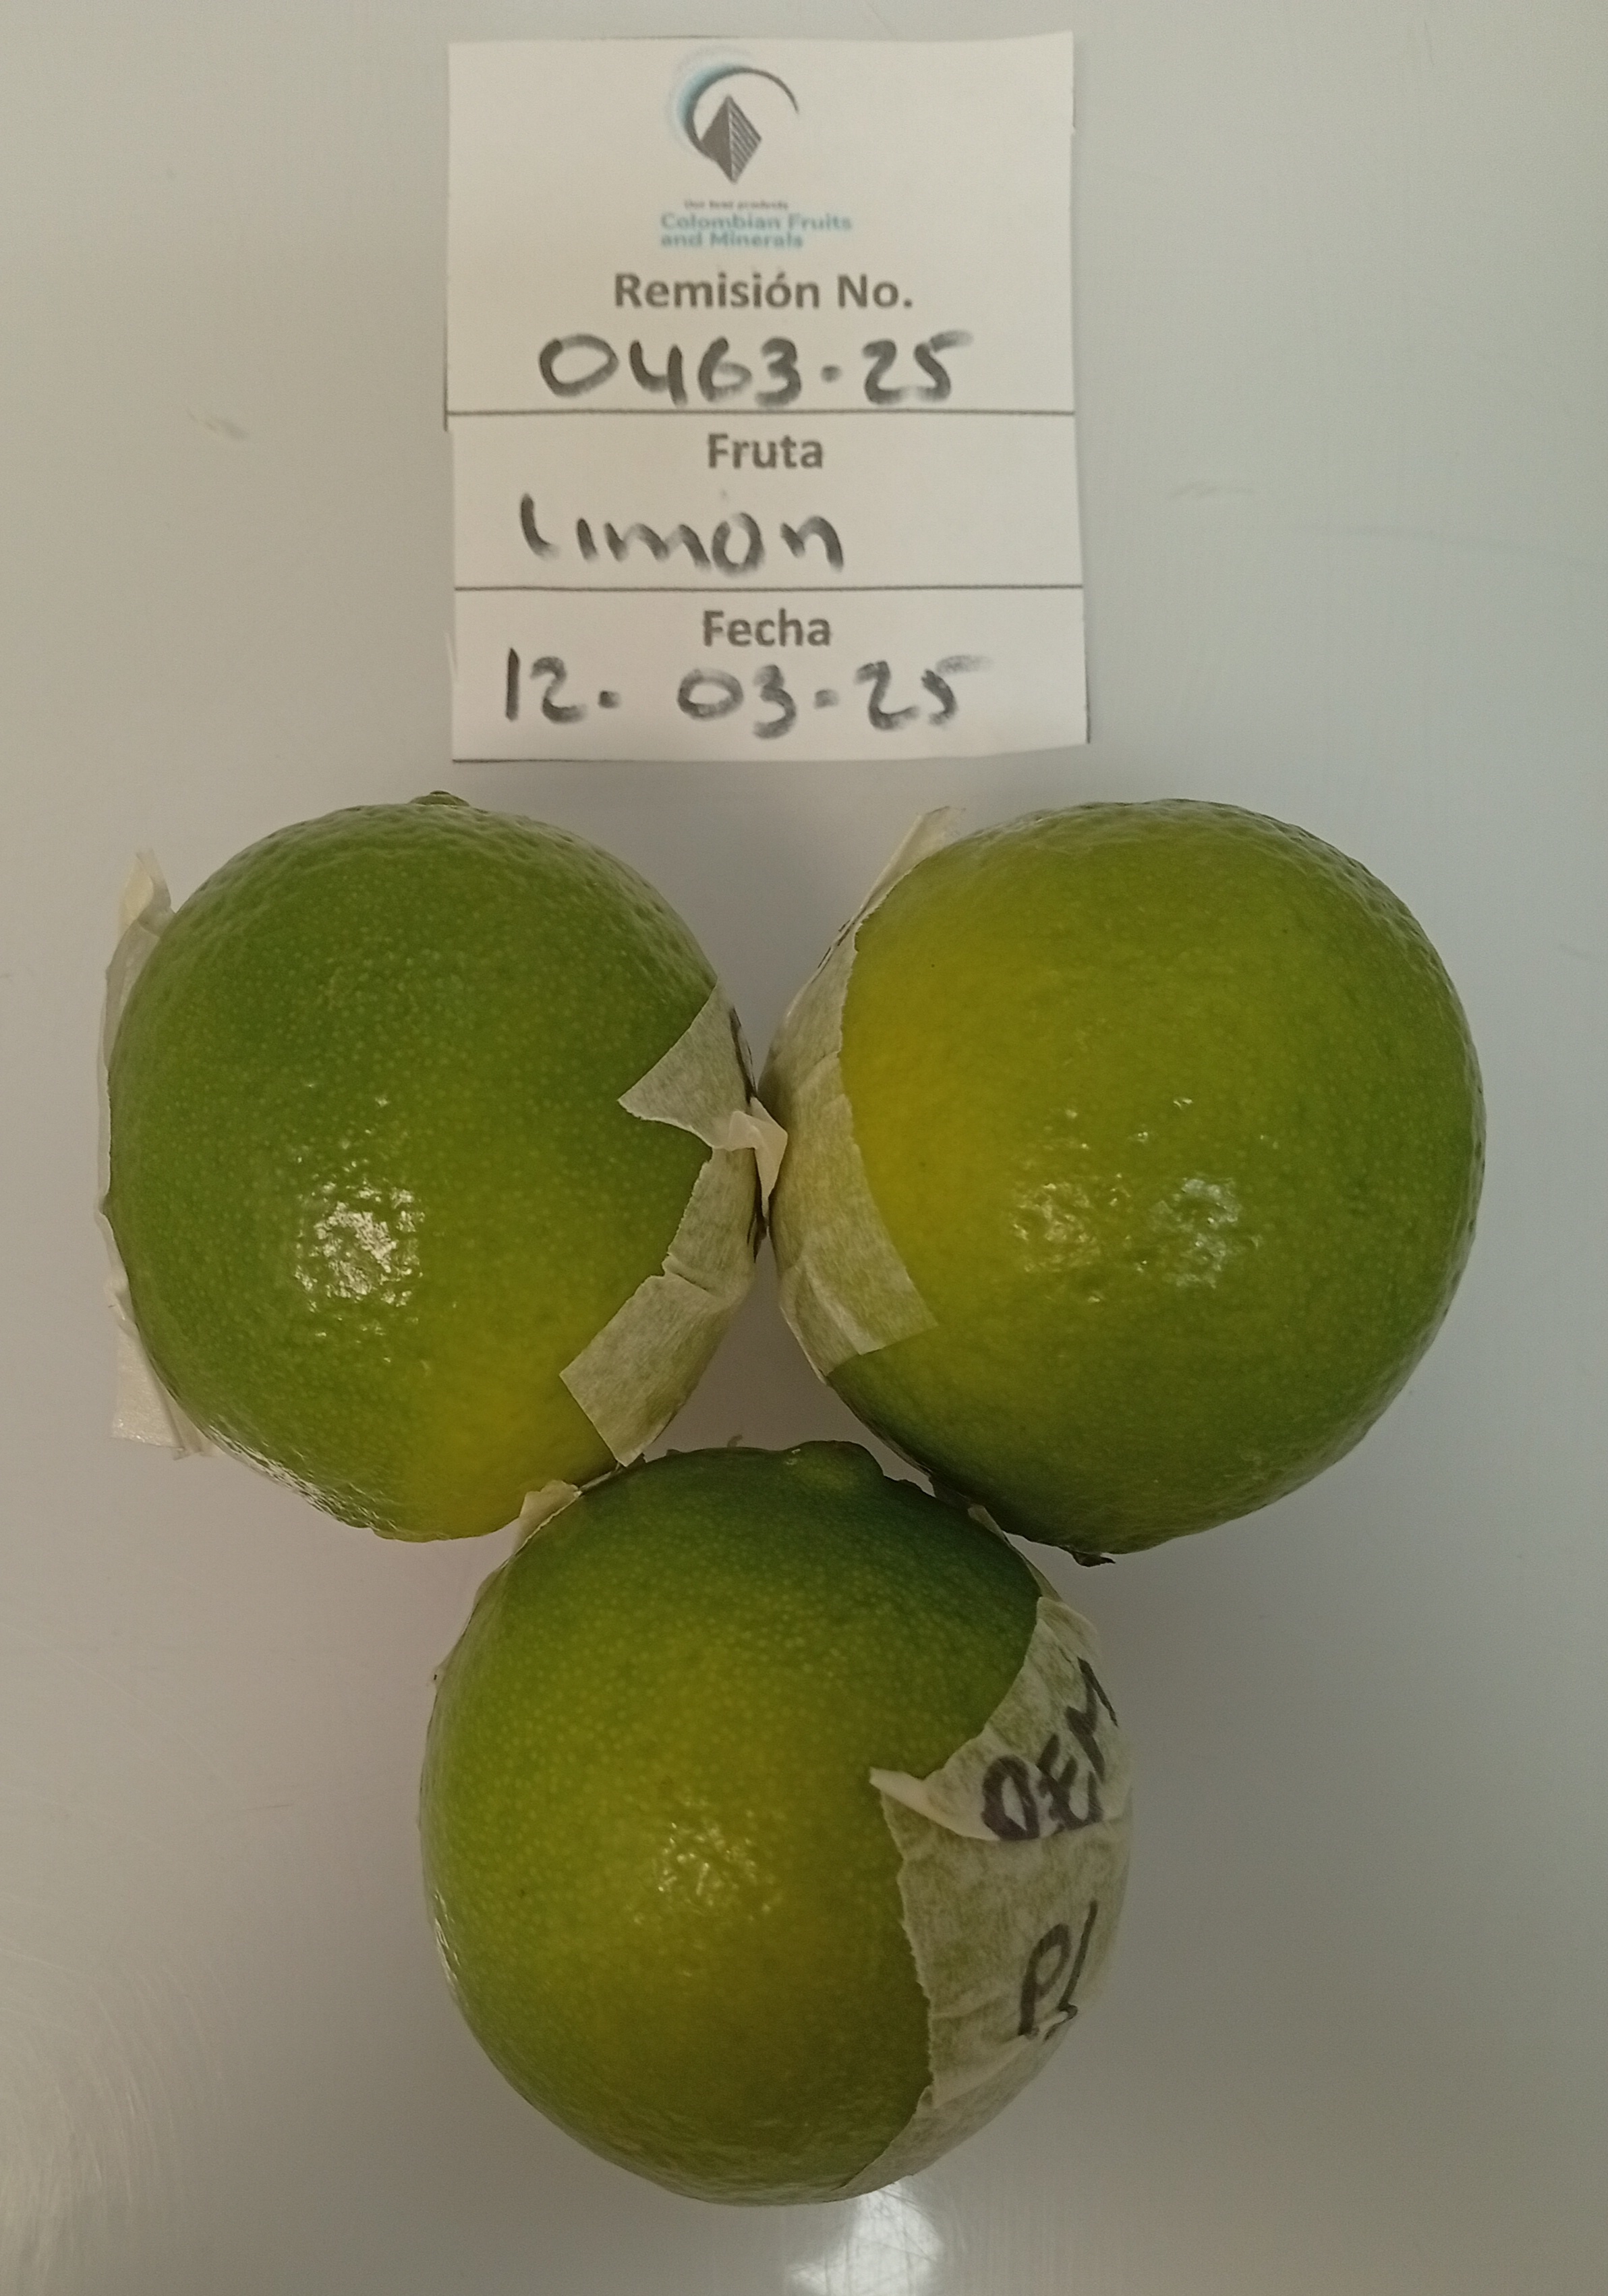 Our best products
Colombian Fruits
and Minerals
Remisión No.
0463-25
Fruta
Limon
Fecha
12. 03-25
DEM
P1